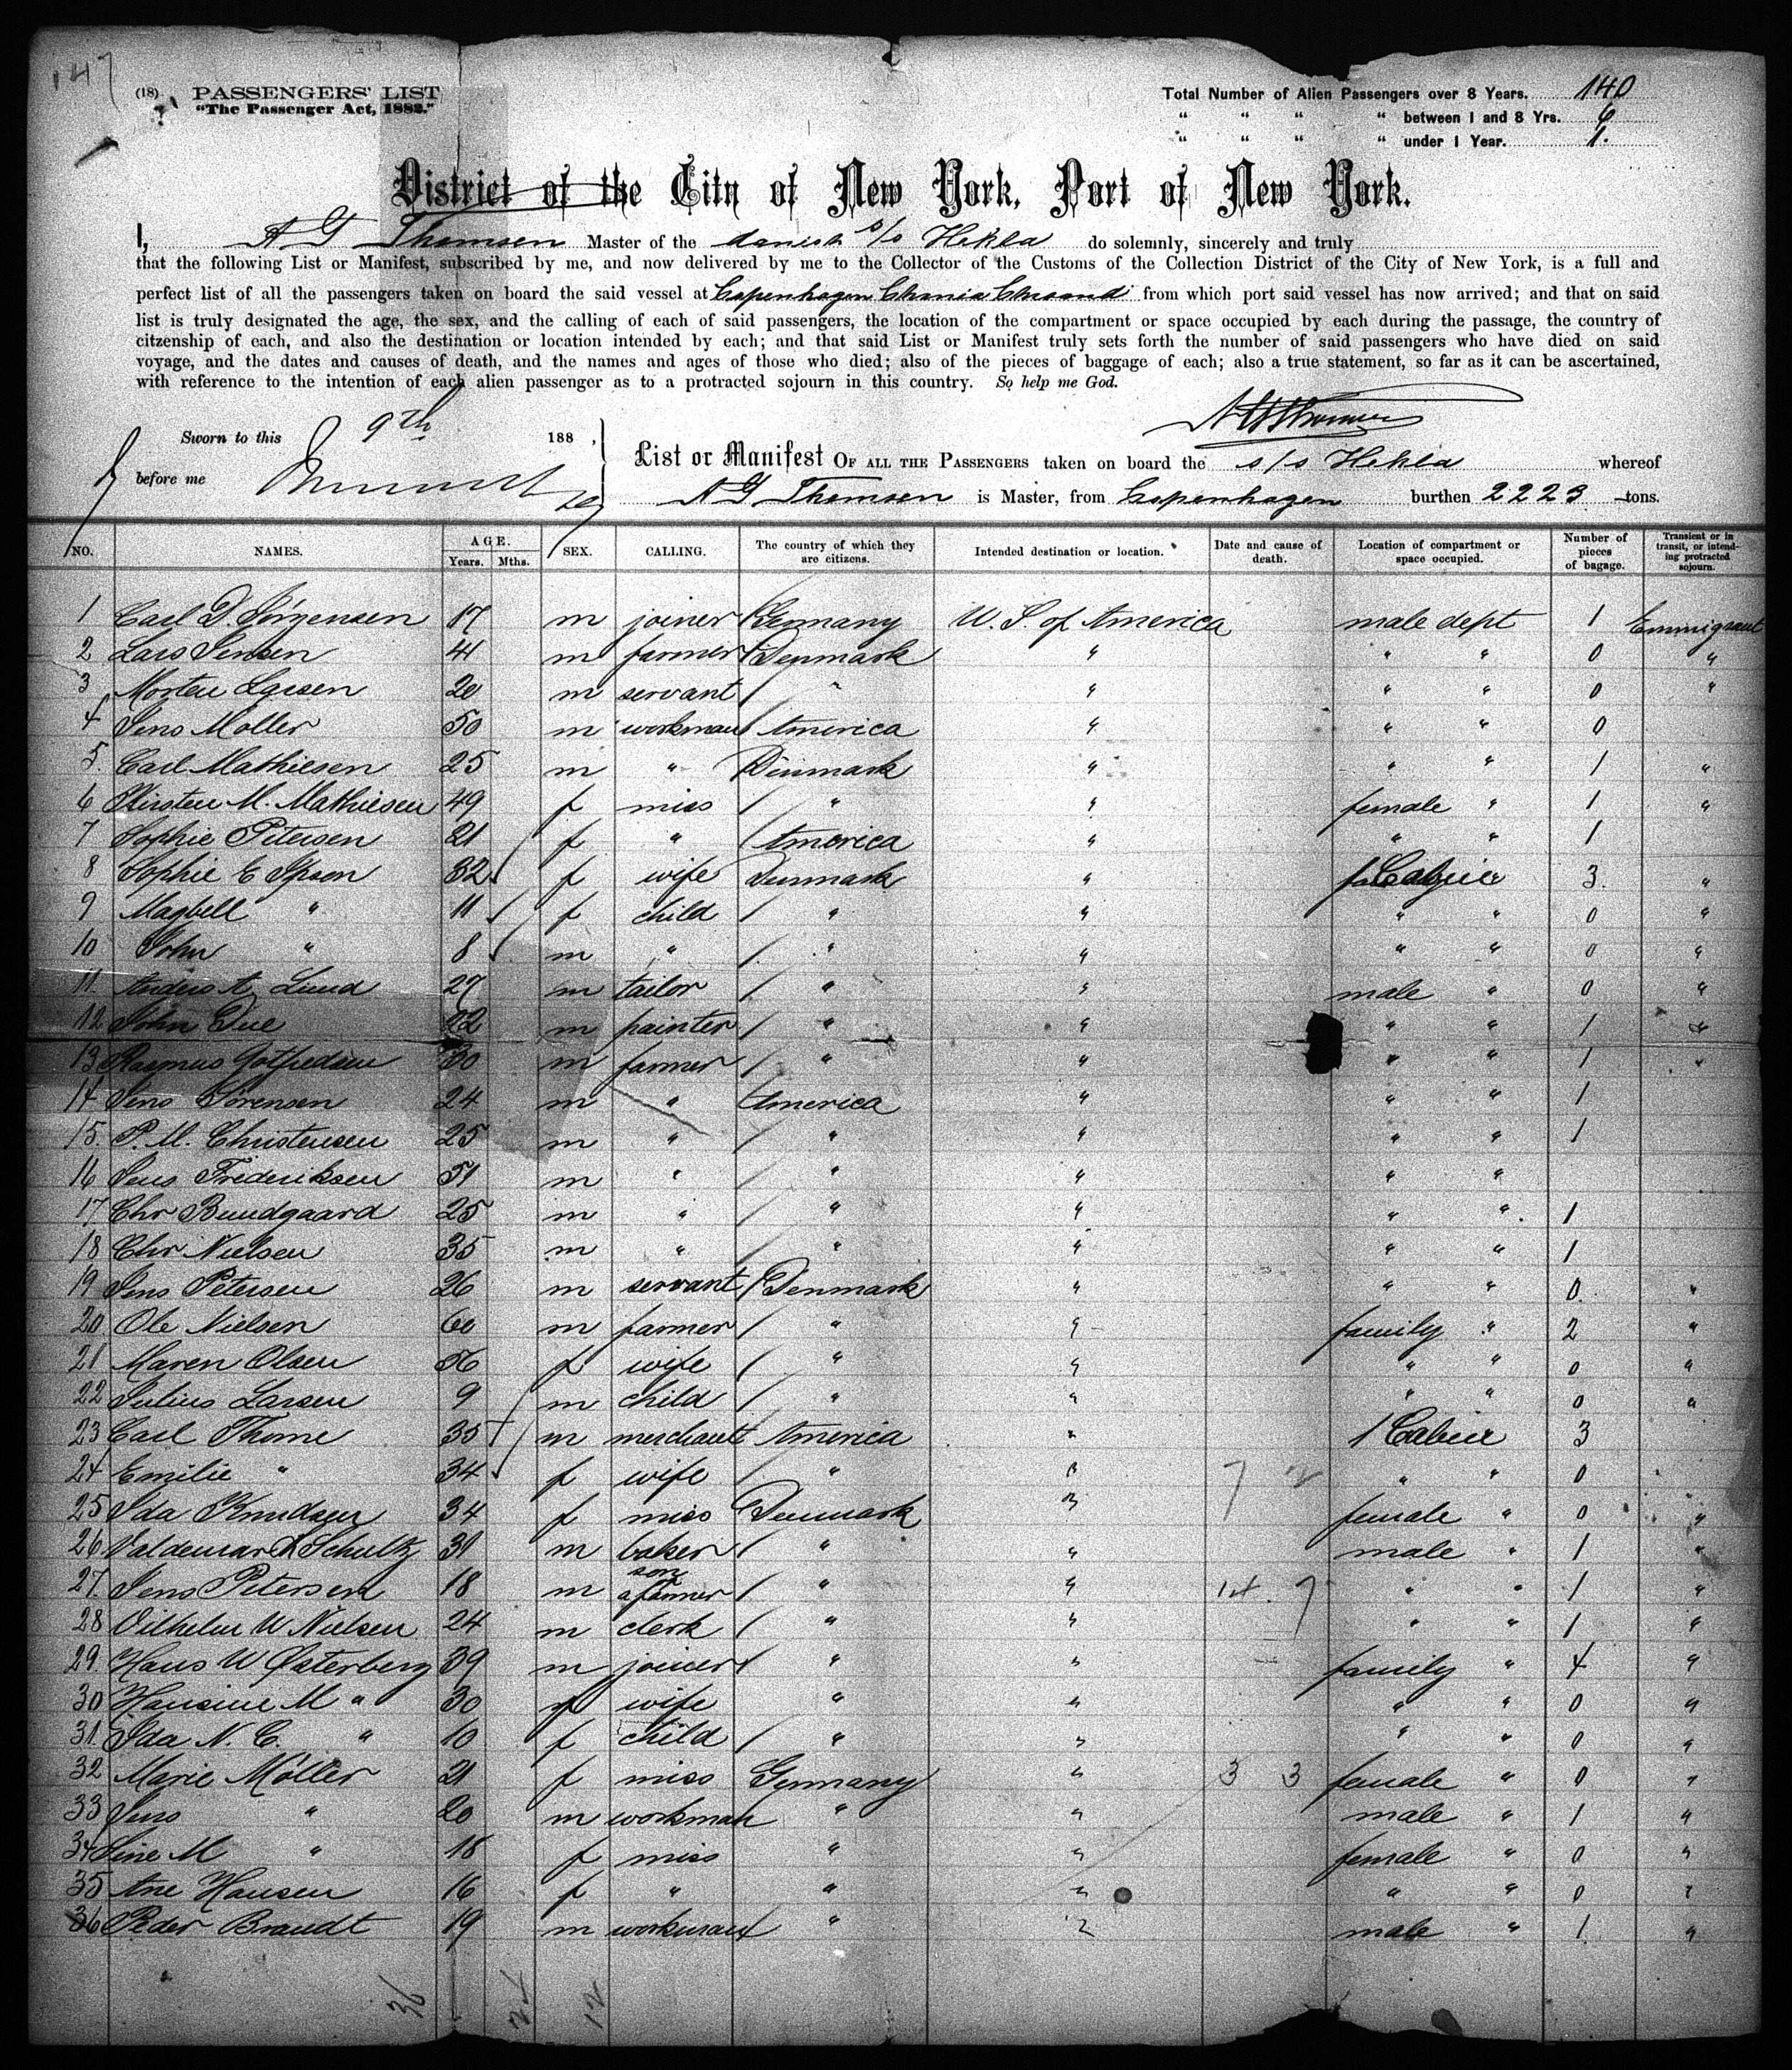 147
(18) PASSENGERS' LIST
"The Passenger Act, 1882."
Total Number of Alien Passengers over 8 Years. 140
" " " " between 1 and 8 Yrs. 6
" " " " under 1 Year. 1.
District of the City of New York, Port of New York.
I, A G Thomsen Master of the danish s/s Hekla do solemnly, sincerely and truly
that the following List or Manifest, subscribed by me, and now delivered by me to the Collector of the Customs of the Collection District of the City of New York, is a full and
perfect list of all the passengers taken on board the said vessel at Copenhagen Chania Chrsand from which port said vessel has now arrived; and that on said
list is truly designated the age, the sex, and the calling of each of said passengers, the location of the compartment or space occupied by each during the passage, the country of
citzenship of each, and also the destination or location intended by each; and that said List or Manifest truly sets forth the number of said passengers who have died on said
voyage, and the dates and causes of death, and the names and ages of those who died; also of the pieces of baggage of each; also a true statement, so far as it can be ascertained,
with reference to the intention of each alien passenger as to a protracted sojourn in this country. So help me God.
Sworn to this 9th 188 ,
before me
List or Manifest OF ALL THE PASSENGERS taken on board the s/s Hekla whereof
A G Thomsen is Master, from Copenhagen burthen 2223 tons.
NO. NAMES. AGE. Years. Mths. SEX. CALLING. The country of which they are citizens. Intended destination or location. Date and cause of death. Location of compartment or space occupied. Number of pieces of bagage. Transient or in transit, or intending protracted sojourn.
1 Carl D. Jörgensen 17 m joiner Germany U. S. of America male dept 1 Emmigrant
2 Lars Jensen 41 m farmer Denmark " " " 0 "
3 Morten Larsen 20 m servant " " " " 0 "
4 Jens Moller 50 m workman America " " " 0
5. Carl Mathiesen 25 m " Denmark " " " 1 "
6 Kirsten M. Mathiesen 49 f miss " " female " 1 "
7 Sophie Petersen 21 f " America " " " 1
8 Sophie C Ipsen 32 f wife Denmark " 1 Cabin " 3. "
9 Magbell " 11 f child " " " " 0 "
10 John " 8 m " " " " " 0 "
11. Anders A. Lund 27 m tailor " " male " 0 "
12 John Due 22 m painter " " " " 1 "
13 Rasmus Gotfredsen 30 m farmer " " " " 1 "
14 Jens Sörensen 24 m " America " " " 1
15. P. M. Christensen 25 m " " " " " 1
16 Jens Frederiksen 51 m " " " " "
17 Chr Bundgaard 25 m " " " " " 1
18 Chr Nielsen 35 m " " " " " 1
19 Jens Petersen 26 m servant Denmark " " " 0. "
20. Ole Nielsen 60 m farmer " " family " 2 "
21 Maren Olsen 56 f wife " " " " 0 "
22 Julius Larsen 9 m child " " " " 0 "
23 Carl Thorne 35 m merchant America " 1 Cabin 3
24 Emilie " 34 f wife " " 7 2 " " 0
25 Ida Knudsen 34 f miss Denmark " female " 0 "
26 Valdemar L Schultz 31 m baker " " male " 1 "
27. Jens Petersen 18 m son a farmer " " 14. 7 " " 1 "
28 Vilhelm W Nielsen 24 m clerk " " " " 1 "
29. Hans W Østerberg 39 m joiner " " family " 4 "
30 Hansine M " 30 f wife " " " " 0 "
31. Ida N. C. " 10 f child " " " " 0 "
32 Marie Möller 21 f miss Germany " 3 3 female " 0 "
33 Jens " 20 m workman " " male " 1 "
34 Sine M " 18 f miss " " female " 0 "
35 Ane Hansen 16 f " " " " " 0 "
36 Peder Brandt 19 m workman " " male " 1. "
36 24 12